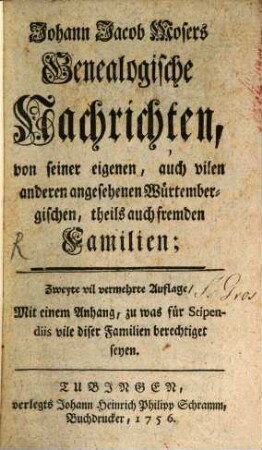 Johann Jacob Mosers
Genealogische
Nachrichten,
von seiner eigenen, auch vilen
anderen angesehenen Würtember-
gischen, theils auch fremden
Familien;
Zweyte vil vermehrte Auflage.
Mit einem Anhang, zu was für Stipen-
diis vile diser Familien berechtiget
seyen.
TUBINGEN,
verlegts Johann Heinrich Philipp Schramm,
Buchdrucker, 1756.